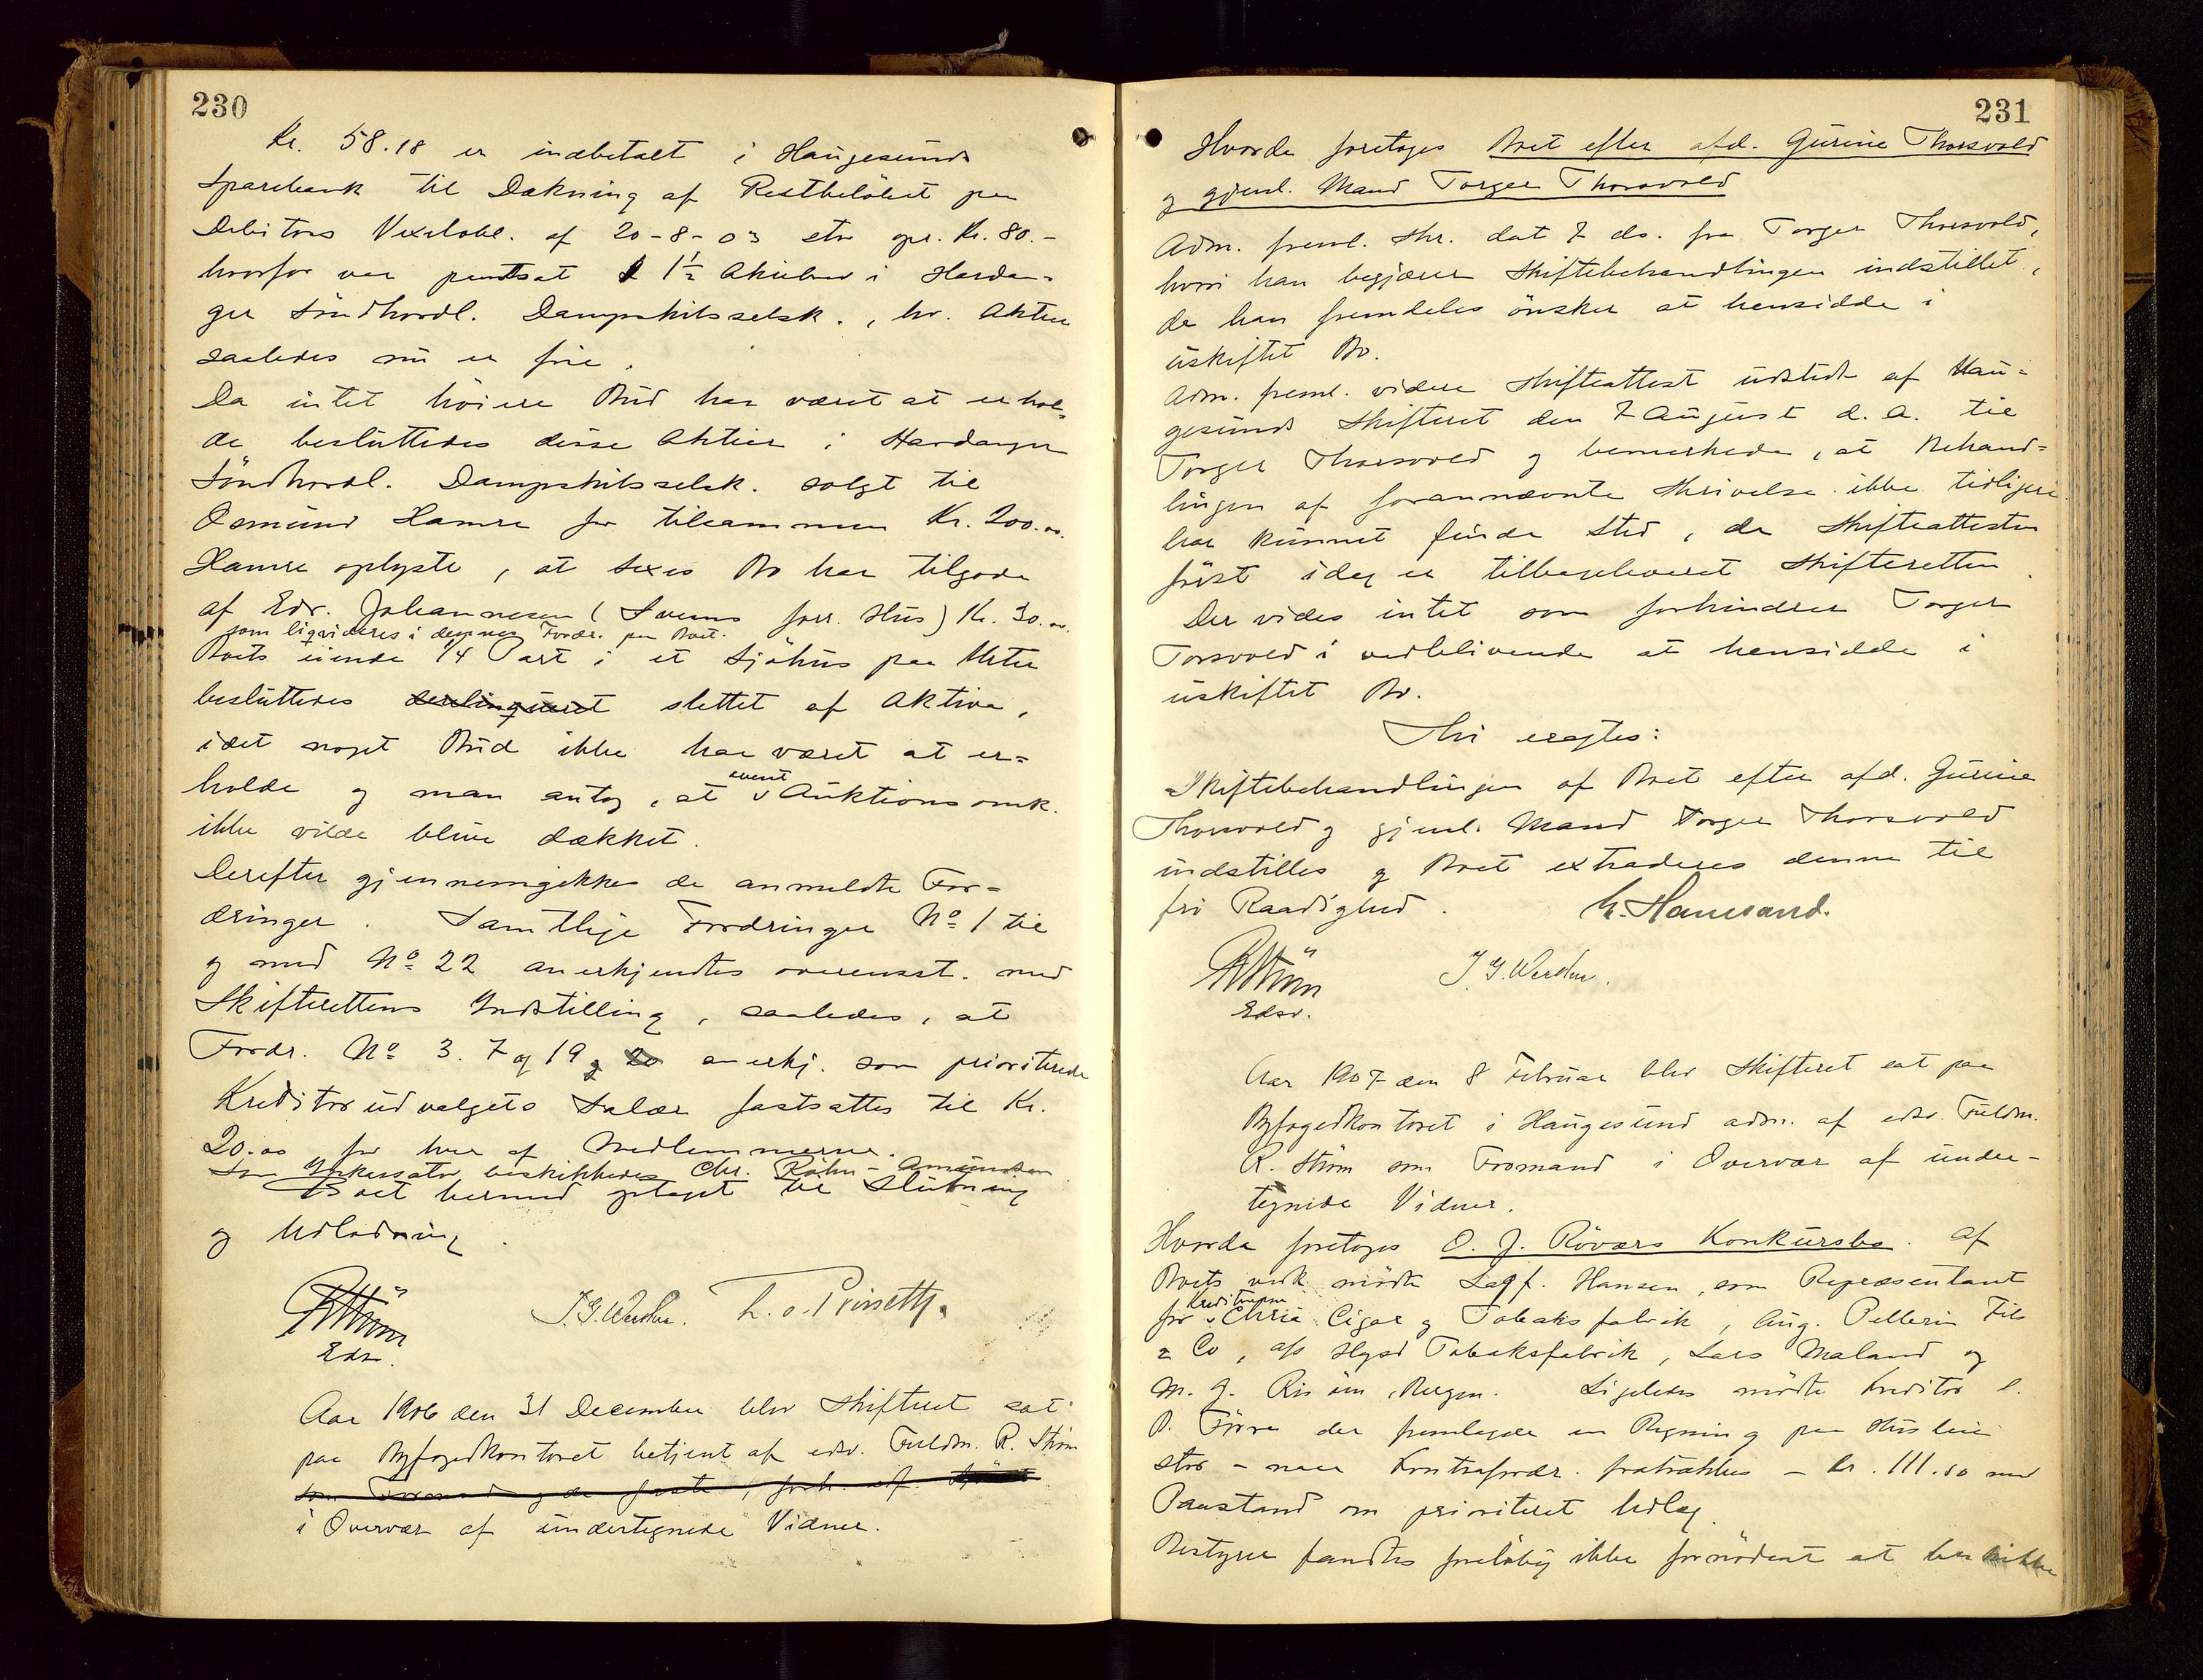 230
Kr. 58.18 er indbetalt i Haugesunds
Sparebank til Dækning af Restbeløbet paa
Debitors Vexelobl. af 20-8-03 stor opr. Kr. 80.-
hvorfor var pantsat 1½ Aktiebrev i Hardan-
ger Söndhordl. Dampskibsselsk., hv. Aktier
saaledes nu er frie.
Da intet höiere Bud har været at erhol-
de besluttedes disse Aktier i Hardanger
Söndhordl. Dampskibsselsk. solgt til
Osmund Hamre for tilsammen Kr. 200.00.
Hamre oplyste, at Sexes Bo har tilgode
af Edv. Johannesen (Svens forr. Hus) Kr. 30.00.
som liqvideres i dennes Fordr. paa Boet.
Boets eiende 1/4 Part i et Sjöhus paa Utsire
besluttedes slettet af Aktiva,
idet noget Bud ikke har været at er-
holde og man antog, at event Auktionsomk.
ikke vilde blive dækket.
Derefter gjennemgikkes de anmeldte For-
dringer. Samtlige Fordringer No 1 til
og med No 22 anerkjendtes overensst. med
Skifterettens Indstilling, saaledes, at
Fordr. No 3. 7 og 19 og 20 anerkj. som prioriterede
Kreditorudvalgets Salær fastsattes til Kr.
20.00 for hver af Medlemmerne.
Som beskikkedes Chr. Röhn-Amundsen
Boet hermed optaget til Slutning
og Udlodning.
RStröm
Edsv.
J. G. Werdin.
Aar 1906 den 31 December blev Skifteret sat
paa Byfogedkontoret betjent af edsv. Fuldm. R. Ström
i Overvær af undertegnede Vidner.
231
Hvorda foretoges Boet efter afd. Gurine Thorsvold
og gjenl. Mand Torger Thorsvold
Adm. freml. Skr. dat 7 ds. fra Torger Thorsvold,
hvori han begjærer Skiftebehandlingen indstillet,
da han fremdeles önsker at hensidde i
uskiftet Bo.
Adm. freml. videre Skifteattest udstedt af Hau-
gesunds Skifteret den 7 August d. A. til
Torger Thorsvold og bemerkede, at Behand-
lingen af forannævnte Skrivelse ikke tidligere
har kunnet finde Sted, da Skifteattesten
först idag er tilbageleveret Skifteretten.
Der vides intet som forhindrer Torger
Torsvold i vedblivende at hensidde i
uskiftet Bo.
Thi eragtes:
Skiftebehandlingen af Boet efter afd. Gurine
Thorsvold og gjenl. Mand Torger Thorsvold
indstilles og Boet extraderes denne til
fri Raadighed.
RStröm
Edsv.
J. G. Werdin.
Aar 1907 den 8 Februar blev Skifteret sat paa
Byfogedkontoret i Haugesund adm. af edsv. Fuldm.
R. Ström som Formand i Overvær af under-
tegnede Vidner.
Hvorda foretoges O. J. Röværs Konkursbo. Af
Boets vedk. mödte Sagf. Hansen, som Repræsentant
for Kreditorerne Chria Cigar og Tobaksfabrik, Aug. Pellerin Fils
& Co, A/S Hgsd Tobaksfabrik, Lars Maland og
M. G. Risöen, Bergen. Ligeledes mödte Kreditor
P. Förre der fremlagde en Regning paa Husleie
stor - naar Kontrafordr. fratrækkes - Kr. 111.50 med
Paastand om prioriteret Udlæg.
Bestyrer fandtes foreløbig ikke fornödent at beskikke